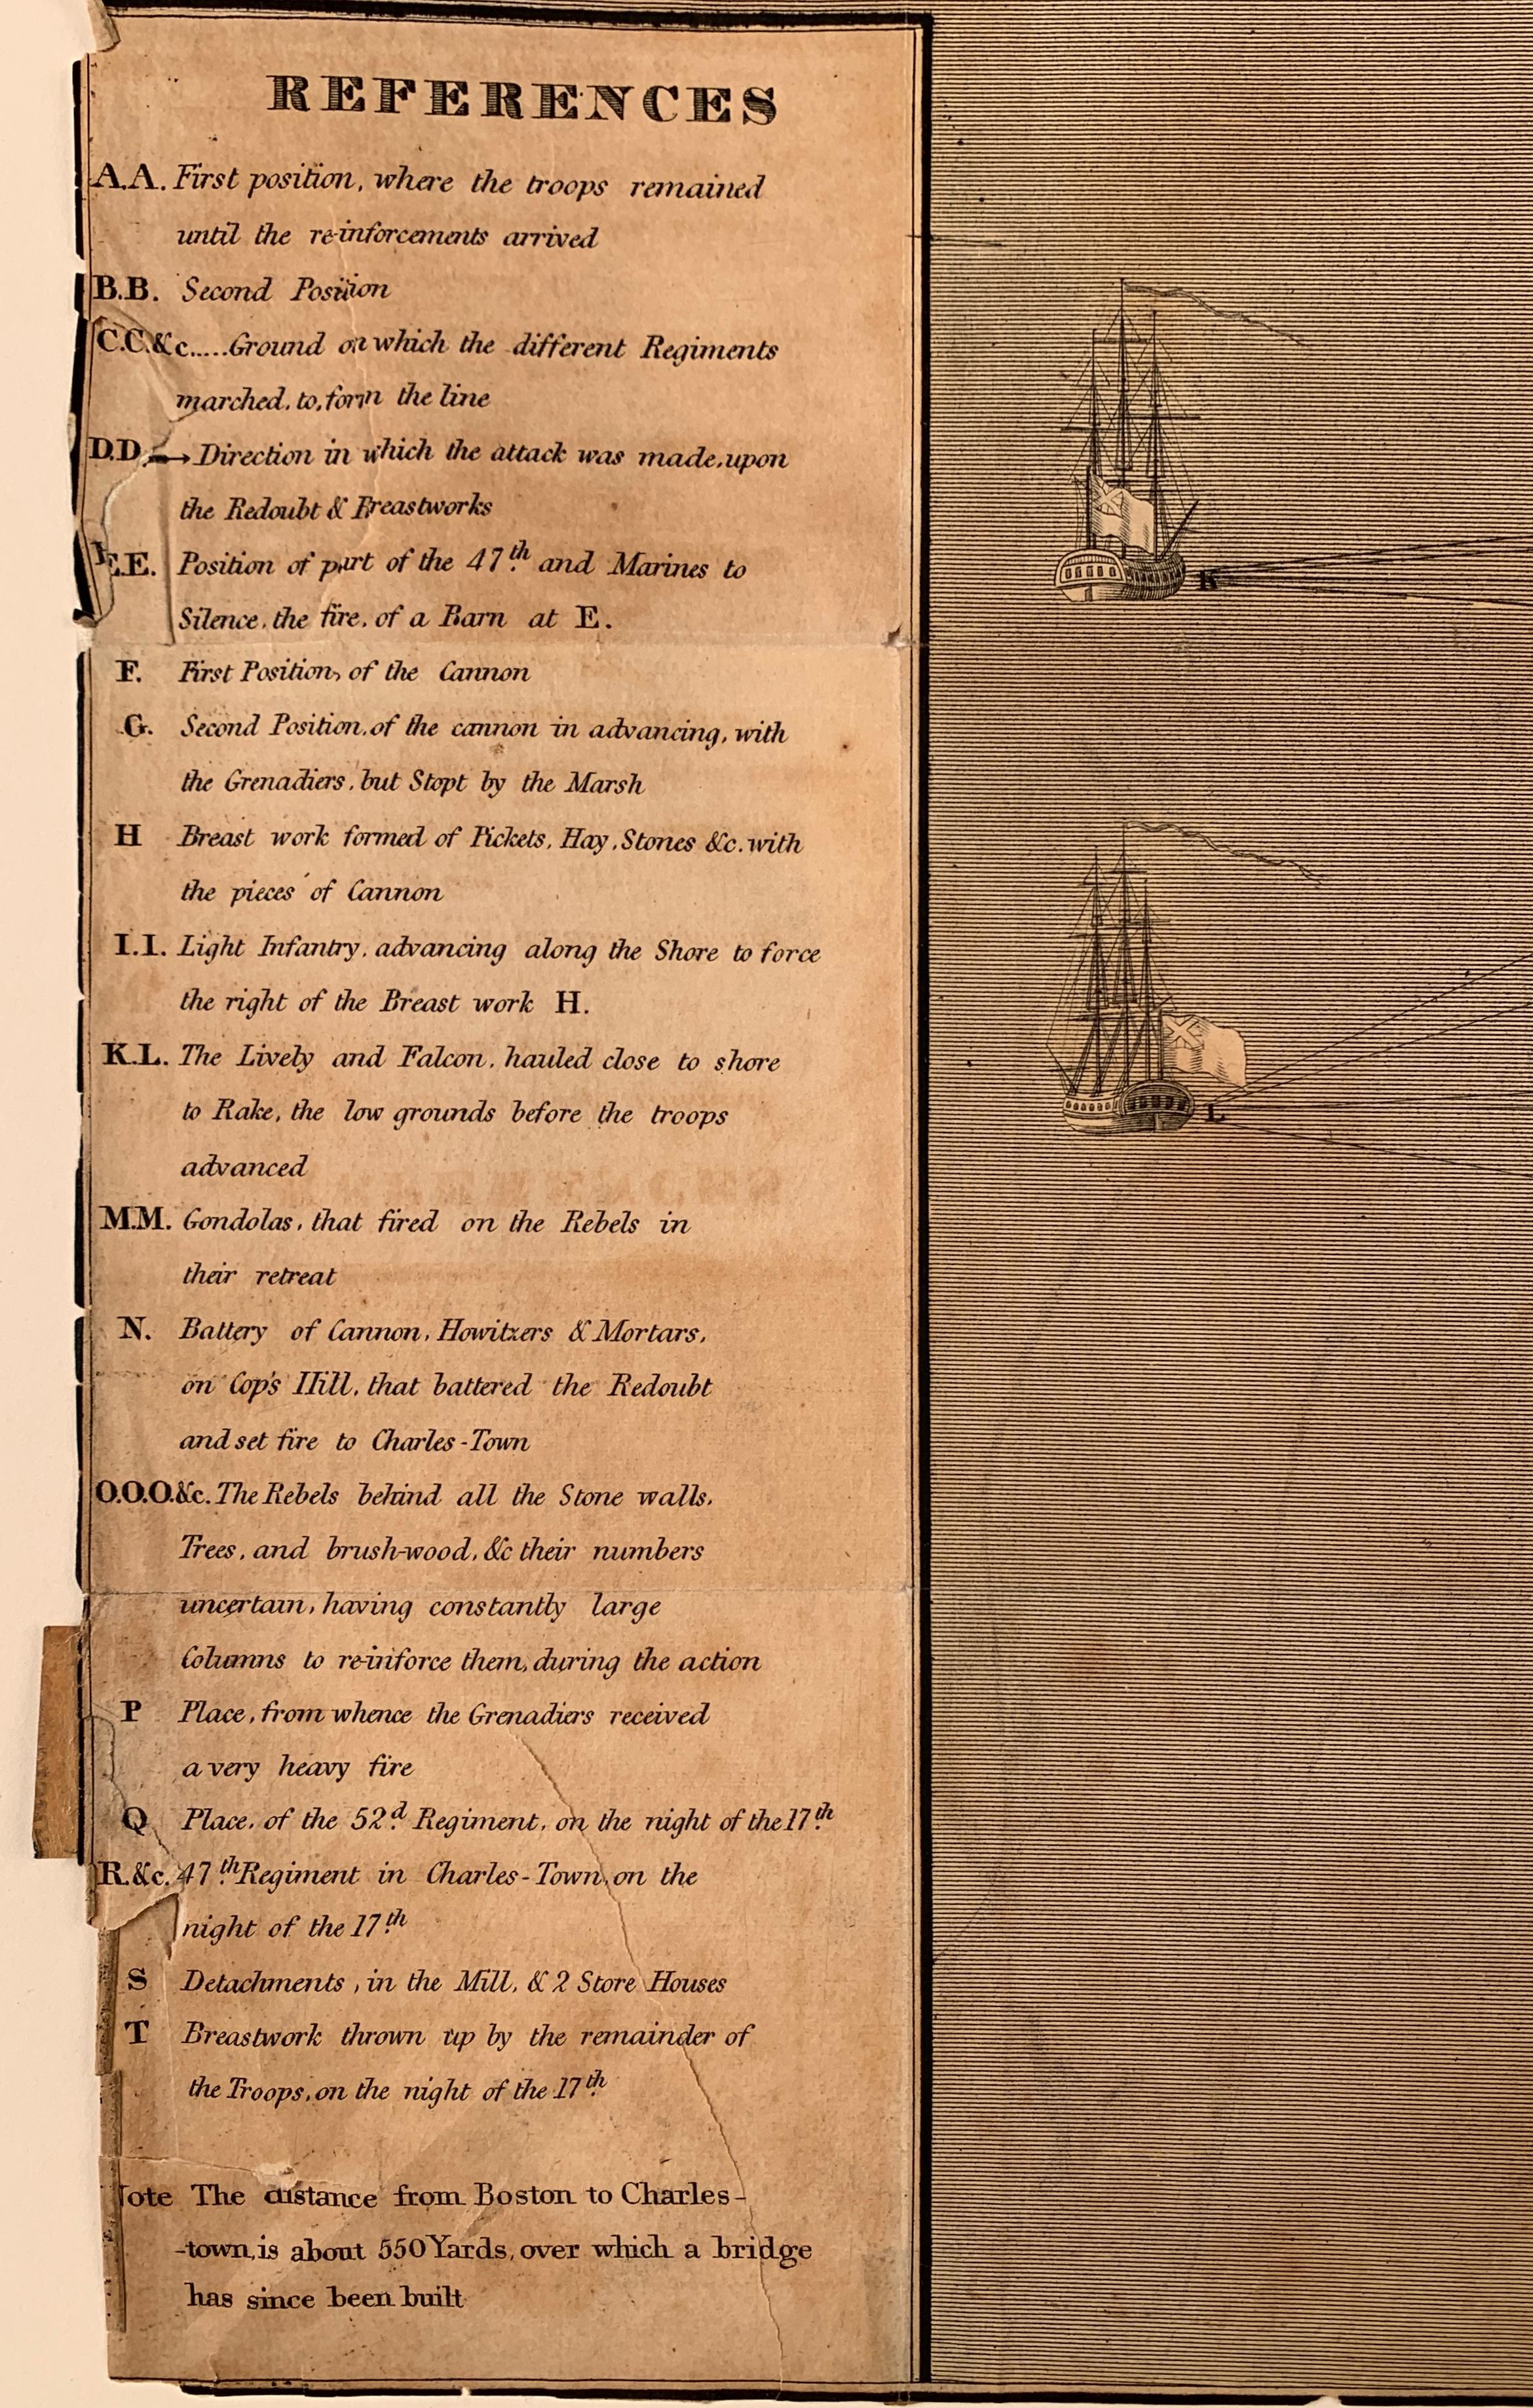 REFERENCES
A.A. First position, where the troops remained
until the re-inforcements arrived
B.B. Second Position
C.C.&c.....Ground on which the different Regiments
marched, to, form the line
D.D. → Direction in which the attack was made, upon
the Redoubt & Breastworks
E.E. Position of part of the 47th and Marines to
Silence, the fire, of a Barn at E.
F. First Position, of the Cannon
G. Second Position, of the cannon in advancing, with
the Grenadiers, but Stopt by the Marsh
H Breast work formed of Pickets, Hay, Stones &c. with
the pieces of Cannon
I.I. Light Infantry, advancing along the Shore to force
the right of the Breast work H.
K.L. The Lively and Falcon, hauled close to shore
to Rake, the low grounds before the troops
advanced
M.M. Gondolas, that fired on the Rebels in
their retreat
N. Battery of Cannon, Howitzers & Mortars,
on Cop's Hill, that battered the Redoubt
and set fire to Charles-Town
O.O.O.&c. The Rebels behind all the Stone walls,
Trees, and brush-wood, &c their numbers
uncertain, having constantly large
Columns to re-inforce them, during the action
P Place, from whence the Grenadiers received
a very heavy fire
Q Place, of the 52d Regiment, on the night of the 17th
R.&c. 47th Regiment in Charles-Town, on the
night of the 17th
S Detachments, in the Mill, & 2 Store Houses
T Breastwork thrown up by the remainder of
the Troops, on the night of the 17th
Note The distance from Boston to Charles-
-town, is about 550 Yards, over which a bridge
has since been built
K
L